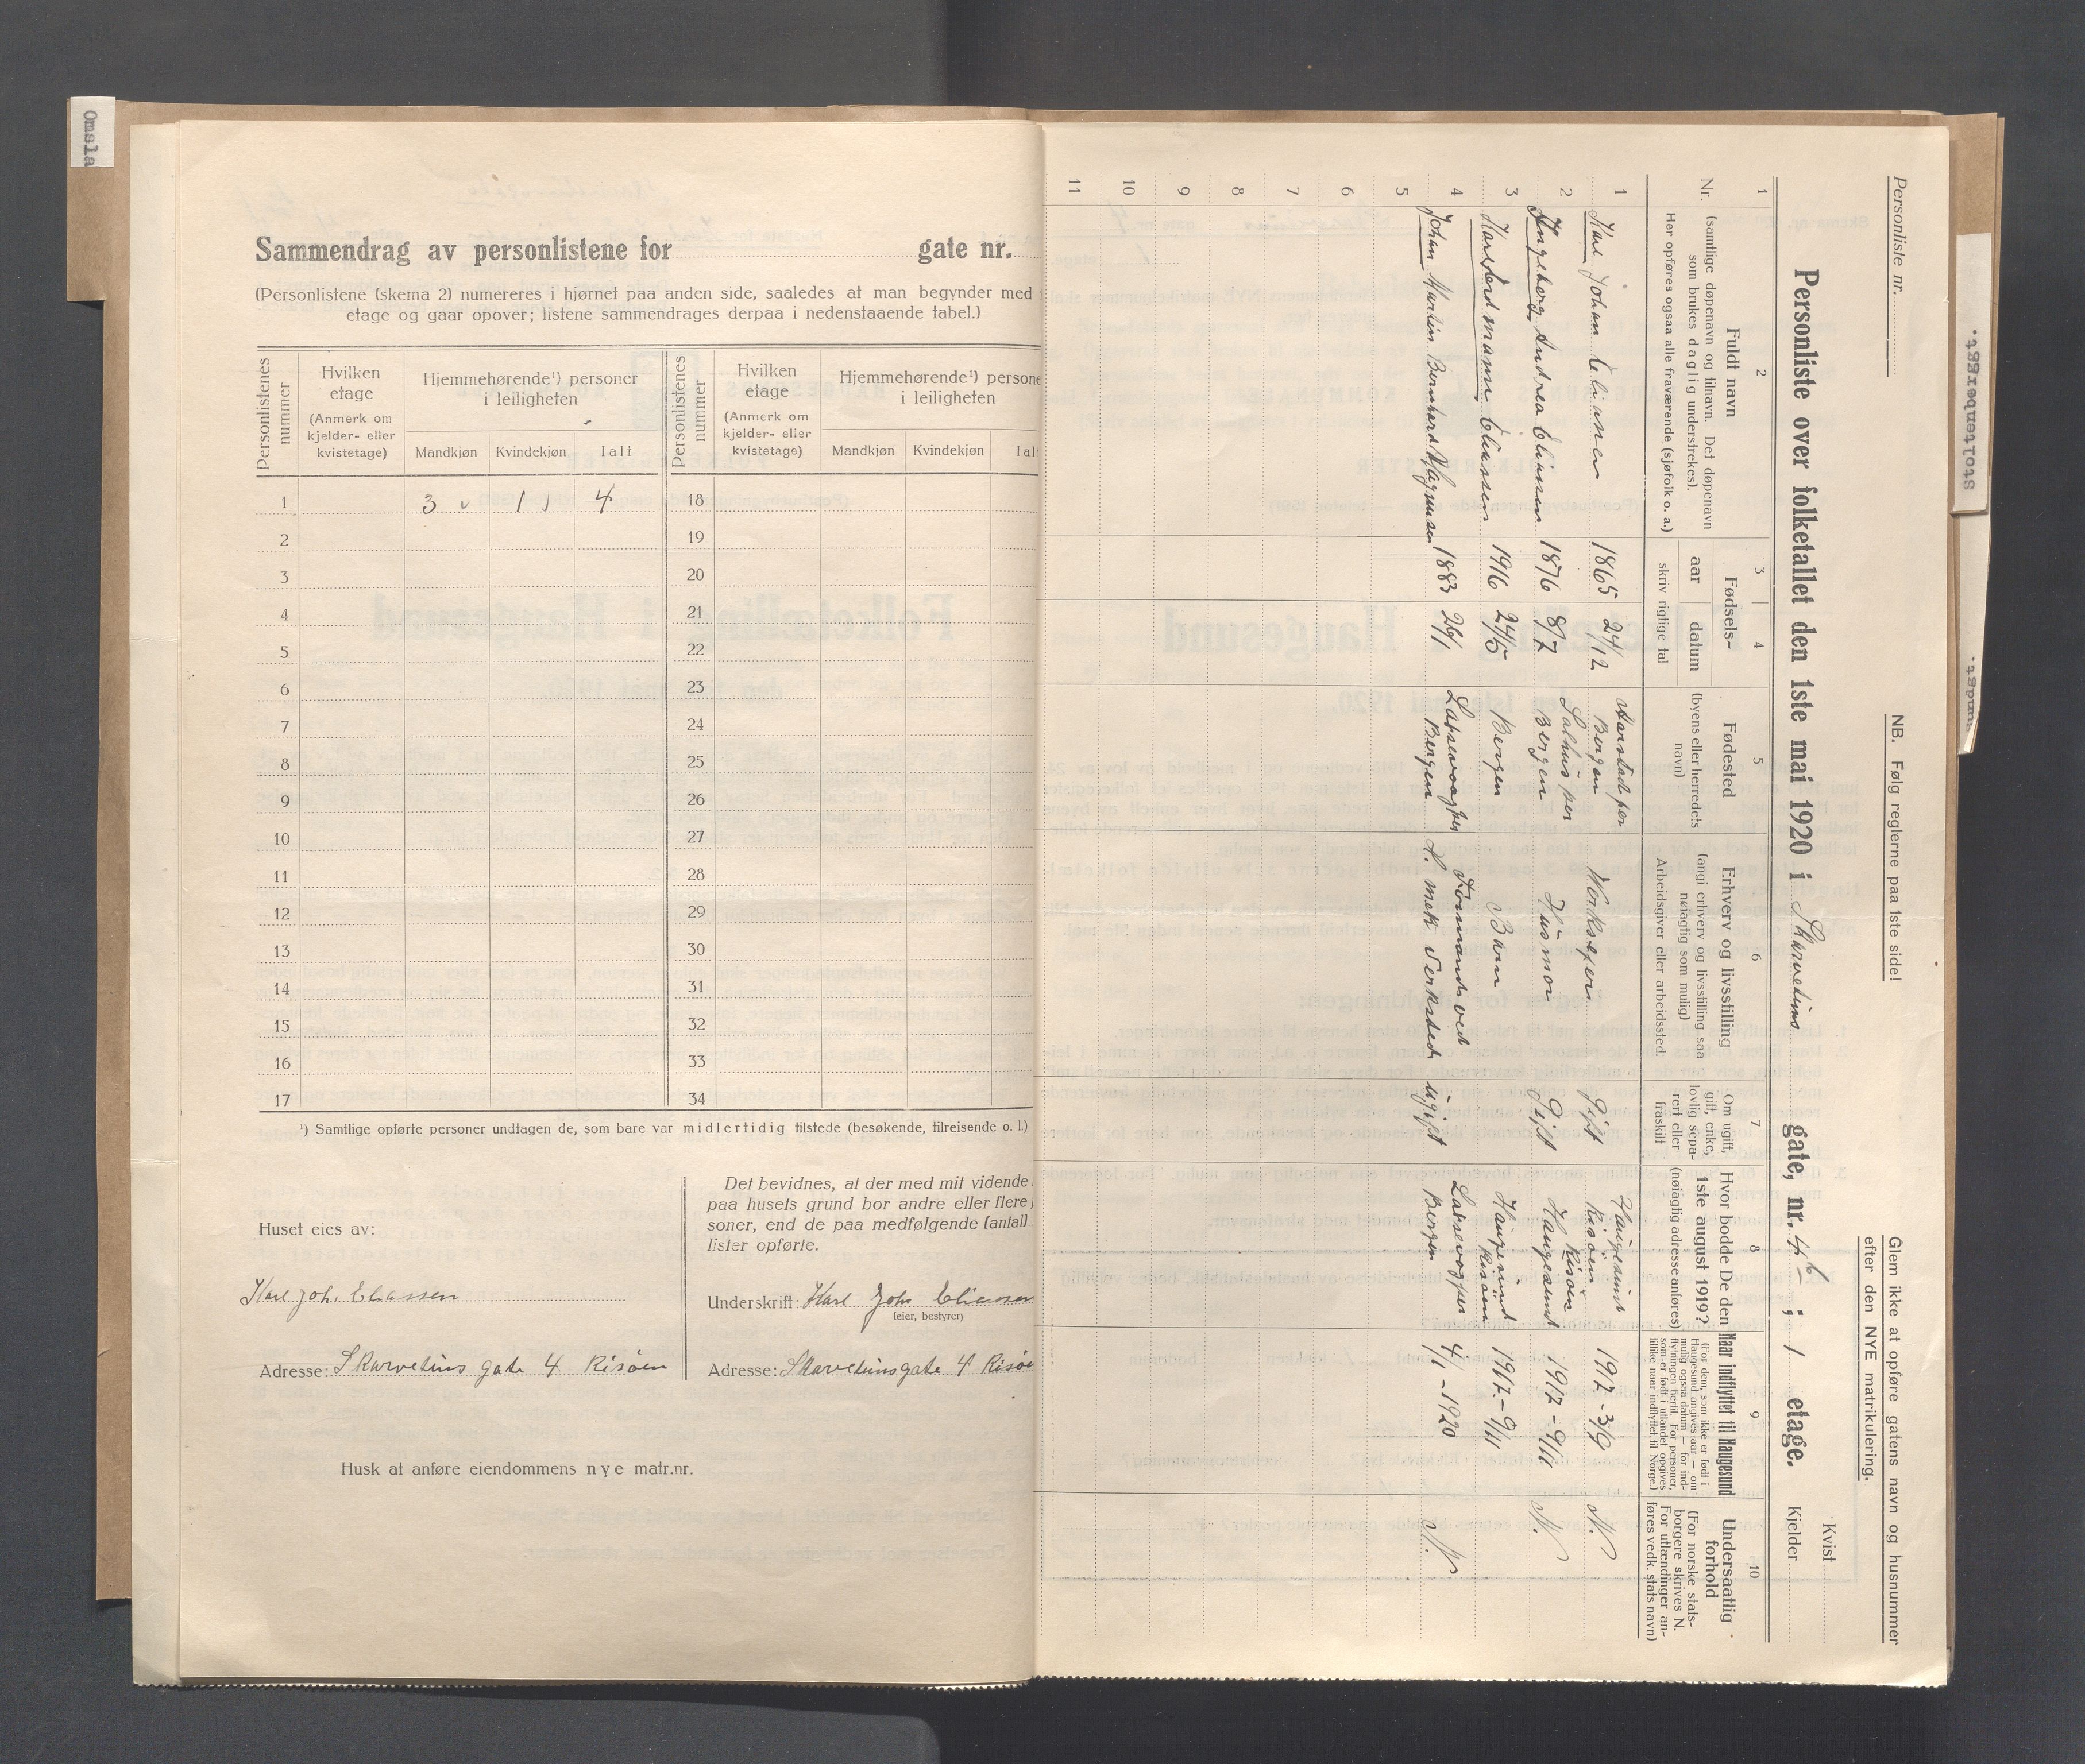 Omsla
Sammendrag av personlistene for gate nr.
(Personlistene (skema 2) numereres i hjørnet paa anden side, saaledes at man begynder med
etage og gaar opover; listene sammendrages derpaa i nedenstaaende tabel.)
Personlistenes nummer
Hvilken etage (Anmerk om kjelder- eller kvistetage)
Hjemmehørende¹) personer i leiligheten
Mandkjøn Kvindekjøn Ialt
Personlistenes nummer
Hvilken etage (Anmerk om kjelder- eller kvistetage)
Hjemmehørende¹) persone
i leiligheten
Mandkjøn Kvindekjøn Ial
1 3 1 4 18
2 19
3 20
4 21
5 22
6 23
7 24
8 25
9 26
10 27
11 28
12 29
13 30
14 31
15 32
16 33
17 34
¹) Samtlige opførte personer undtagen de, som bare var midlertidig tilstede (besøkende, tilreisende o. l.)
Huset eies av:
Karl Joh. Eliassen
Adresse: Skarvetins gate 4 Risøen
Det bevidnes, at der med mit vidende
paa husets grund bor andre eller flere
soner, end de paa medfølgende (antal)
lister opførte.
Underskrift: Karl Joh Eliassen
(eier, bestyrer)
Adresse: Skarvetinsgate 4 Risøe
Husk at anføre eiendommens nye matr.nr.
Personliste nr.
NB. Følg reglerne paa 1ste side!
Glem ikke at opføre gatens navn og husnummer
efter den NYE matrikulering.
Personliste over folketallet den 1ste mai 1920 i Skarvetins gate, nr. 4 ; 1 etage.
Kvist
Kjelder
1 2 3 4 5 6 7 8 9 10
Nr.
Fuldt navn
(samtlige døpenavn og tilnavn. Det døpenavn
som brukes daglig understrekes).
Her opføres ogsaa alle fraværende (sjøfolk o. a.)
Fødsels-
aar datum
skriv rigtige tal
Fødested
(byens eller herredets
navn)
Erhverv og livsstilling
(angi erhverv og livsstilling saa
nøiagtig som mulig)
Arbeidsgiver eller arbeidssted.
Om ugift,
gift, enke,
lovlig sepa-
rert eller
fraskilt
Hvor bodde De den
1ste august 1919?
(nøiagtig adresse anføres)
Naar indflyttet til Haugesund
(For dem, som ikke er født i
Haugesund angives aar — om
mulig ogsaa datum — for ind-
flytningen hertil. For personer,
som er født i utlandet opgives
tillike naar indflyttet til Norge.)
Undersaatlig
forhold
(For norske stats-
borgere skrives N.
For utlændinger an-
føres vedk. stats navn)
1 Karl Johan Eliassen 1865 24/12 Aarstad per Bergen Verkseier Gift Haugesund Risøen 1917 - 3/9 N.
2 Ingeborg Andrea Eliassen 1876 8/7 Salhus per Bergen Husmor Gift Risøen Haugesund 1917 - 9/11 N.
3 Karsferdmann Eliassen 1916 24/5 Bergen Barn Haugesund Risøen 1917 - 9/11
4 Johan Martin Bernhard Magnusen 1883 26/1 Laksevaag per Bergen Formand ved H. mek Verksted ugift Laksevog per Bergen 4/1 - 1920 N.
5
6
7
8
9
10
11
Stoltenbergst.